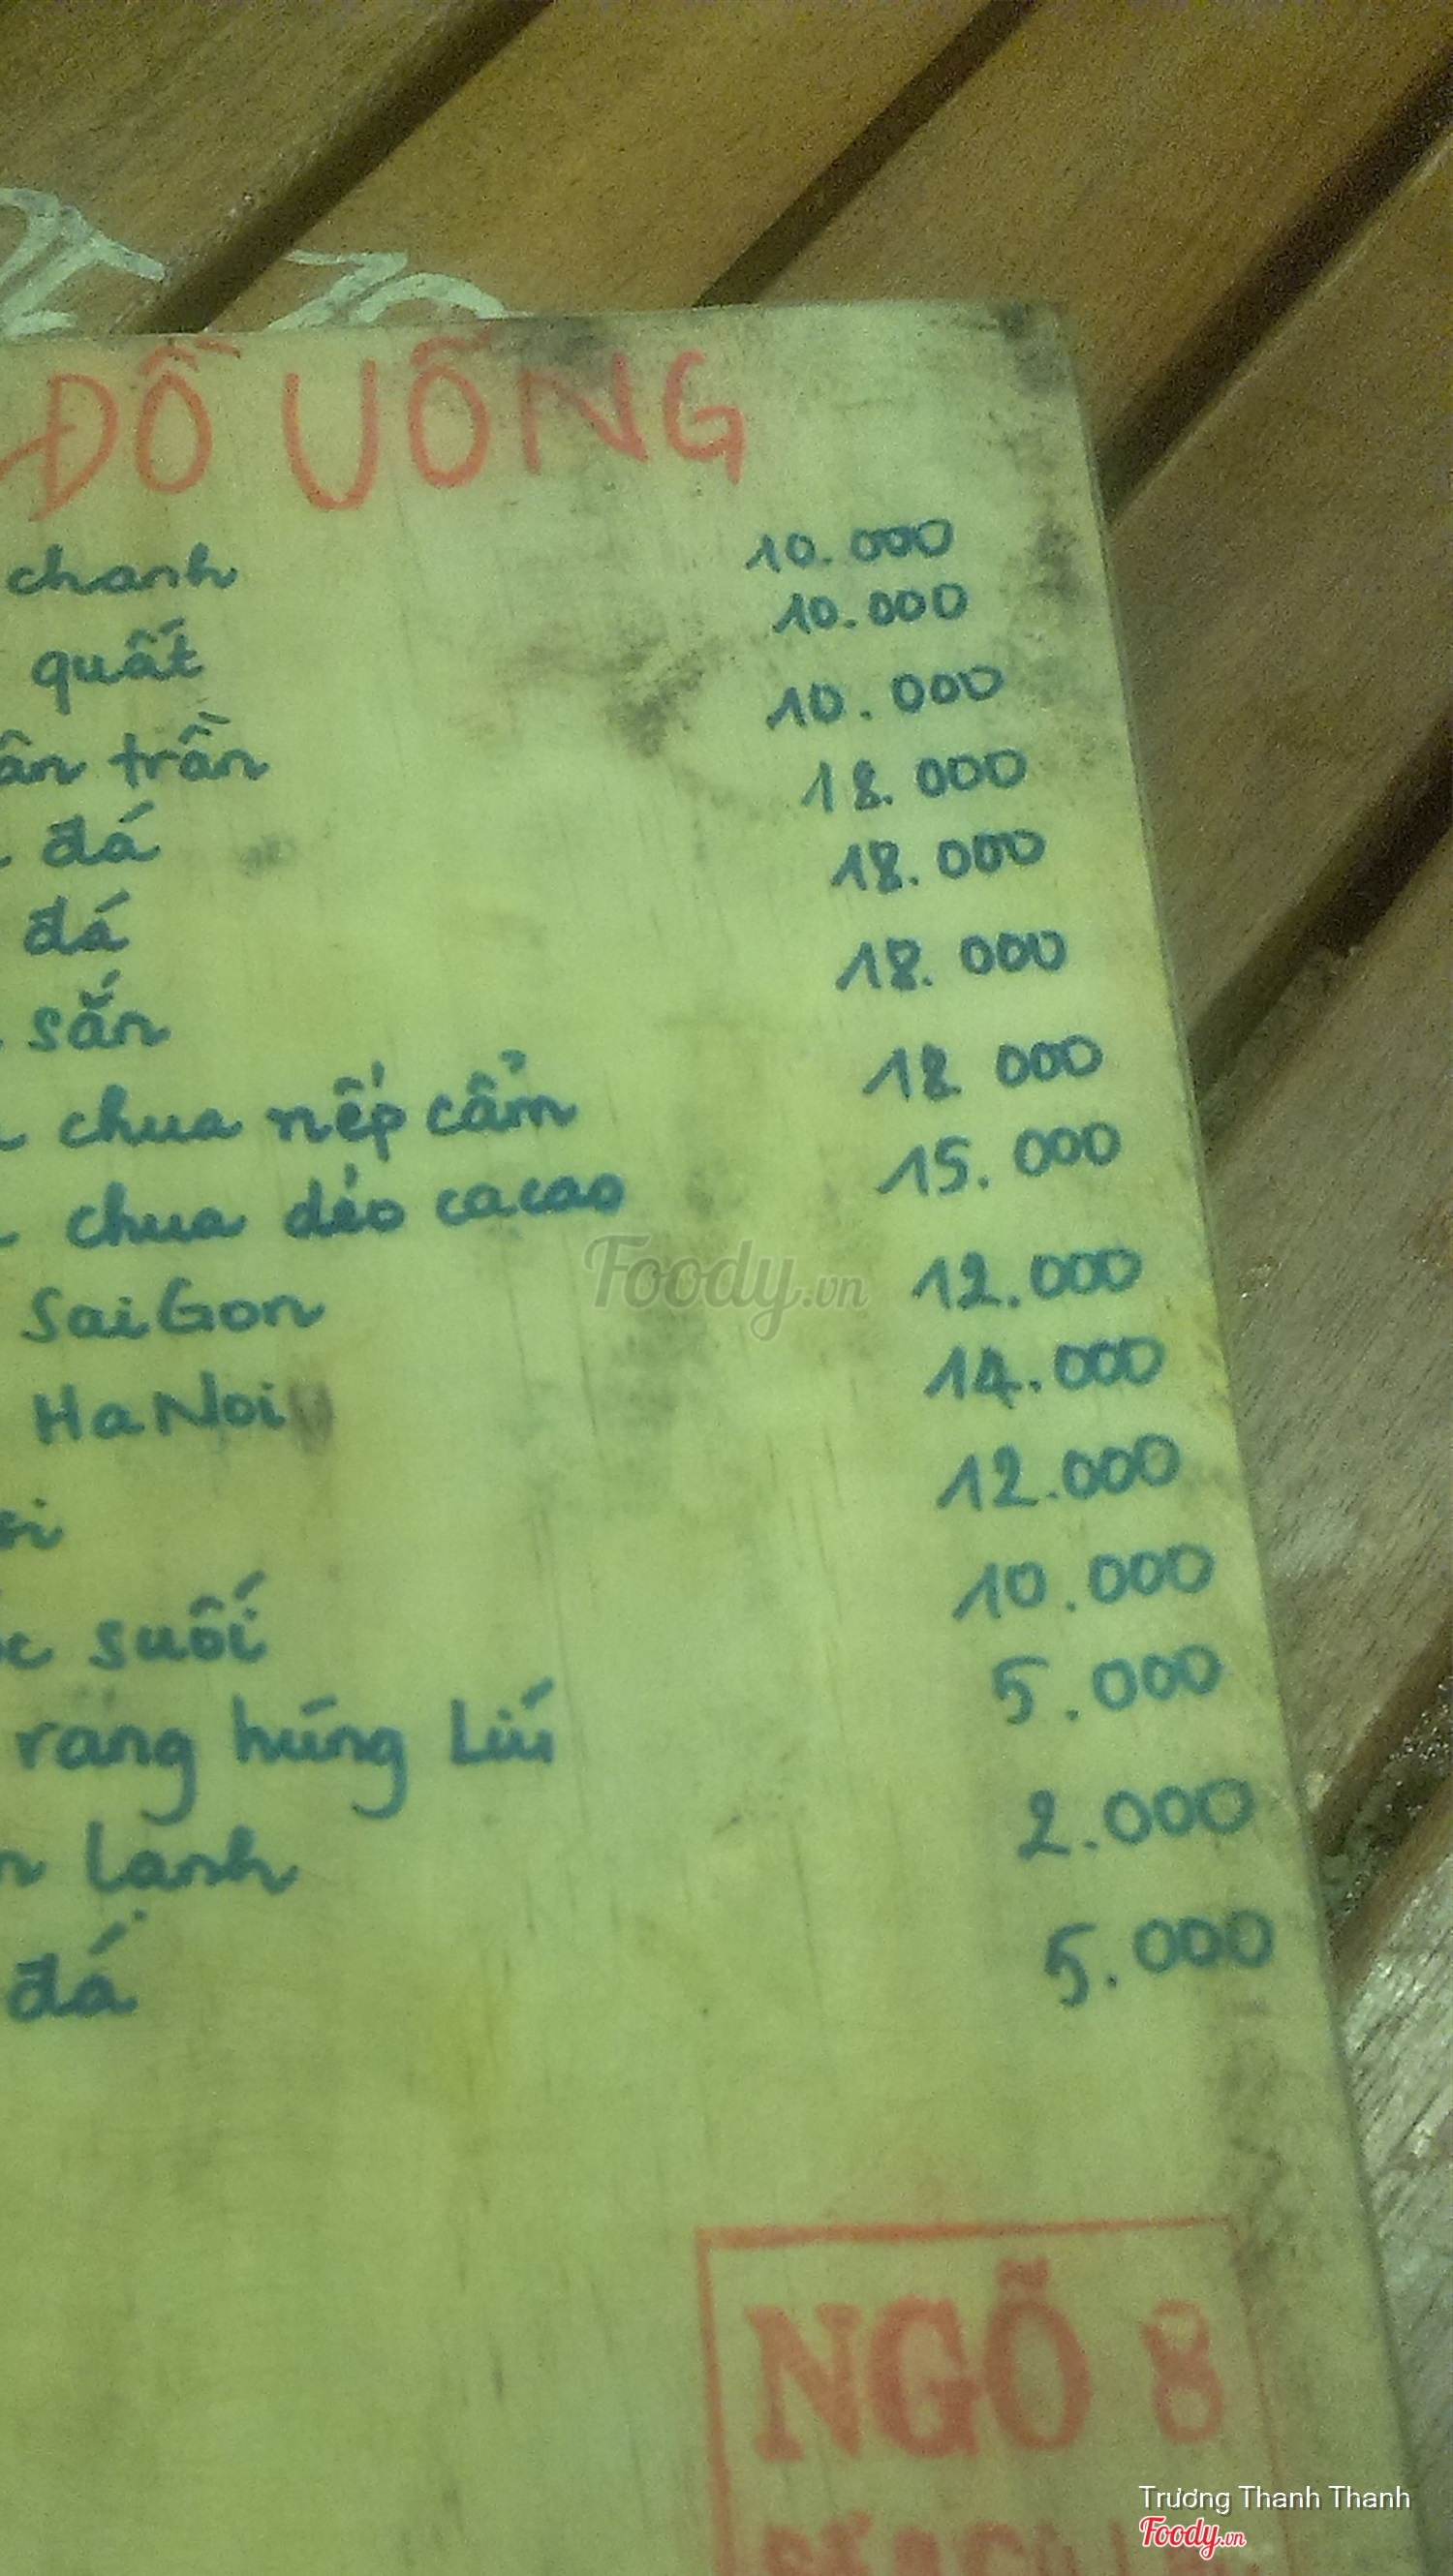 ĐỒ UỐNG
chanh 10.000
quất 10.000
trần 10.000
đá 18.000
đá 18.000
sắn 18.000
chua nếp cẩm 18 000
chua dẻo cacao 15.000
SaiGon 12.000
HaNoi 14.000
12.000
suối 10.000
rang húng lìu 5.000
lạnh 2.000
đá 5.000
Foody.vn
NGÕ 8
Trương Thanh Thanh
Foody.vn